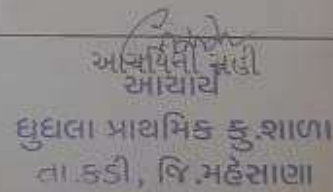 આચાર્યની સહી
આચાર્ય
ઘુઘલા પ્રાથમિક કુ.શાળા
તા.કડી, જિ.મહેસાણા